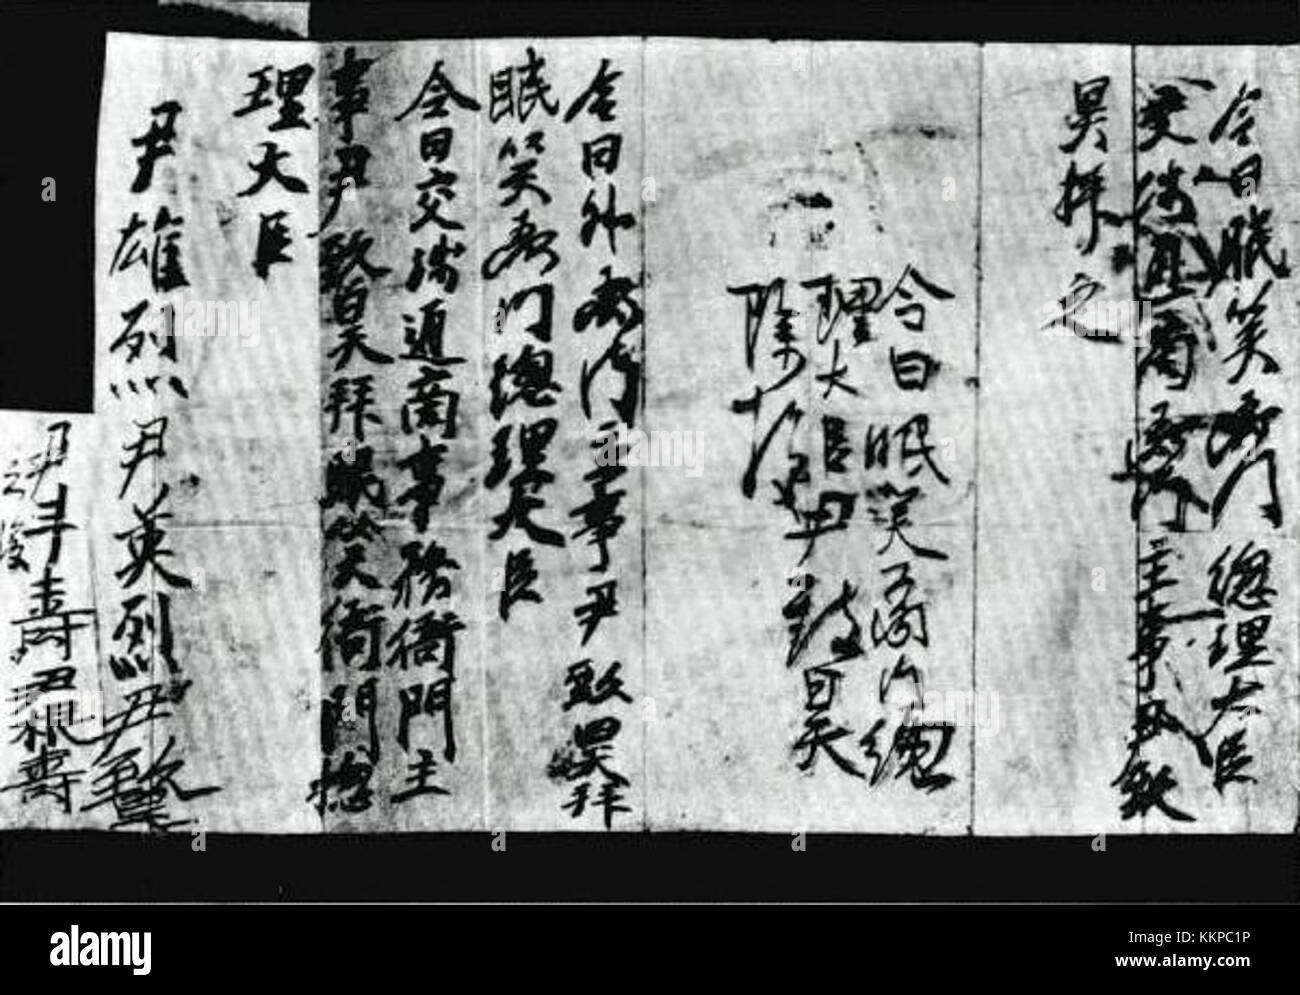 今日眠笑衙門總理大臣
交涉通商衙門主事尹致
昊拜之
今日眠笑衙門總
理大臣尹致昊
除
今日外衙門主事尹致昊拜
眠笑衙門總理大臣
今日交涉通商事務衙門主
事尹致昊拜眠笑衙門總
理大臣
尹雄烈尹英烈尹致昊
尹斗壽尹根壽
之後
alamy
Image ID: KKPC1P
www.alamy.com